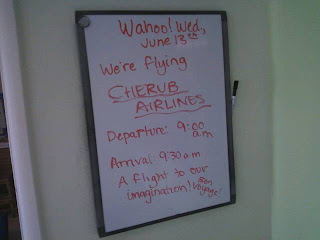 Wahoo! Wed.,
June 13th
We're flying
CHERUB
AIRLINES
Departure: 9:00
am
Arrival: 9:30 am
A flight to our
imagination! Bon
Voyage!